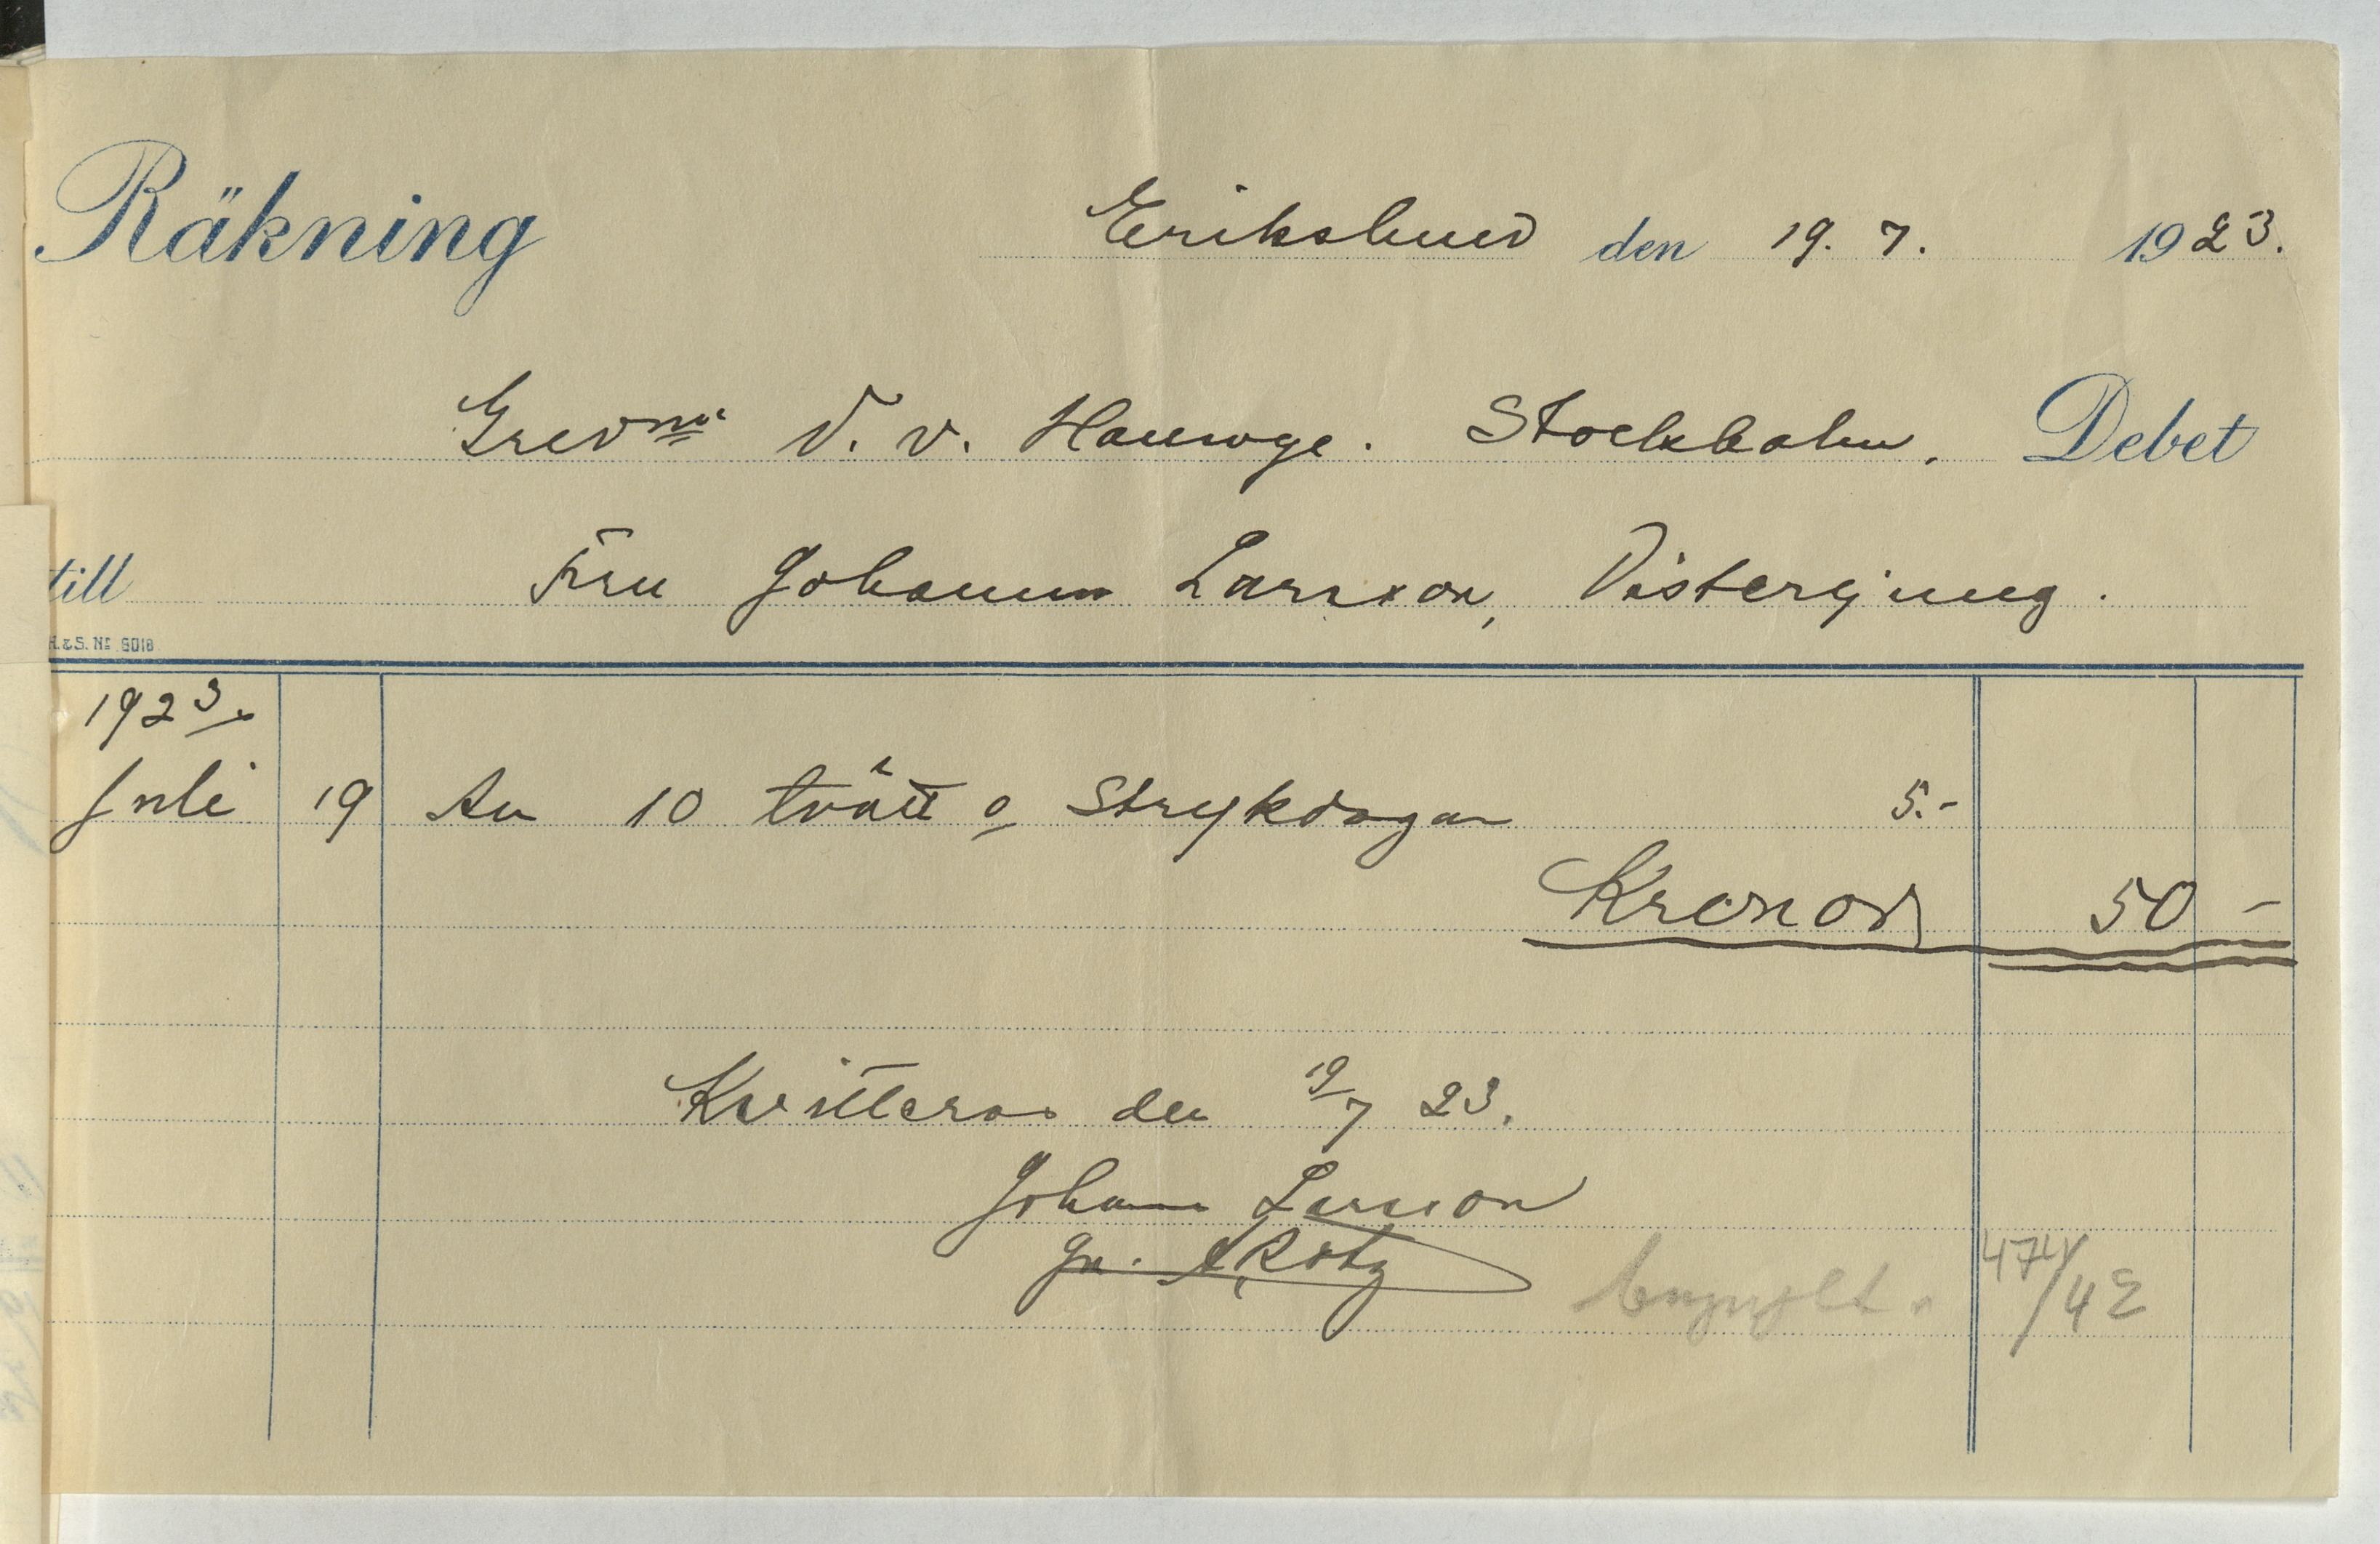 Räkning Erikslund den 19. 7. 1923.
Grevin. V. v. Hauswge. Stockholm. Debet
till Fru Johanna Larsson, Västerljung.
H. & S. No 6018
1923.
Juli 19 An 10 tvätt o. Strykdagar 5.-
Kronor 50 -
Kvitteras den 19/7 23.
Johanna Larsson
gn. A. Rotz